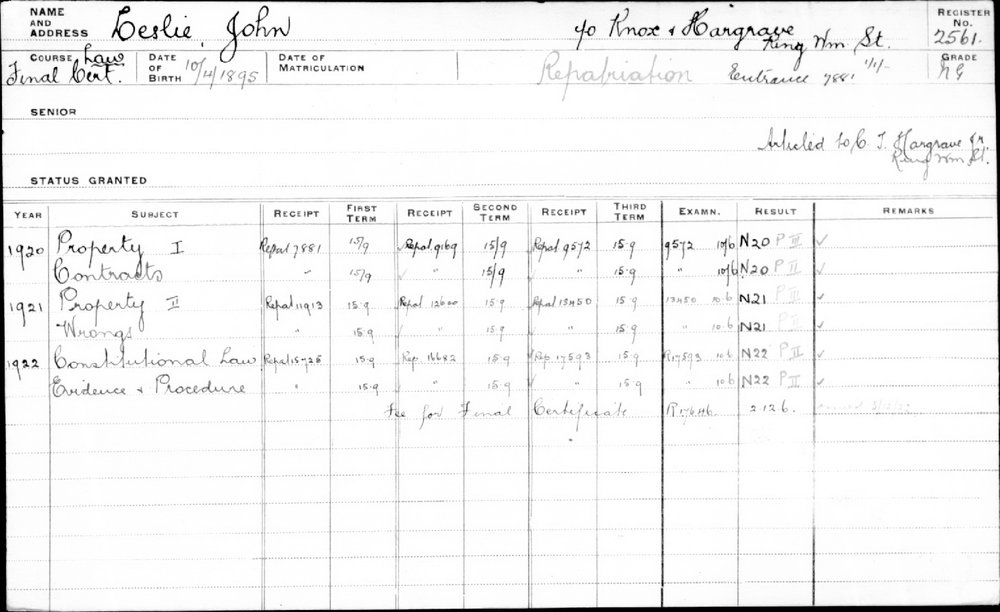 NAME AND ADDRESS Leslie, John c/o Knox & Hargrave King Wm St. REGISTER No. 2561.
COURSE Law Final Cert. DATE OF BIRTH 10/4/1895 DATE OF MATRICULATION Repatriation Entrance 7881 1/1/- GRADE NG
SENIOR
Articled to C. T. Hargrave Jr.
King Wm St.
STATUS GRANTED
YEAR SUBJECT RECEIPT FIRST TERM RECEIPT SECOND TERM RECEIPT THIRD TERM EXAMN. RESULT REMARKS
1920 Property I Repat 7881 15/9 ✓ Repat. 9169 15/9 Repat 9572 15.9 9572 10/6 N20 P III ✓
Contracts " 15/9 ✓ " 15/9 ✓ " 15.9 " 10/6 N20 P II ✓
1921 Property II Repat 11913 15.9 ✓ Repat 12600 15.9 Repat 13450 15.9 13450 10.6 N21 P III ✓
Wrongs " 15.9 ✓ " 15.9 ✓ " 15.9 " 10.6 N21 P III ✓
1922 Constitutional Law Repat 15725 15.9 ✓ Rep. 16682 15.9 ✓ Rep 17593 15.9 R17593 10.6 N22 P II ✓
Evidence & Procedure " 15.9 ✓ " 15.9 ✓ " 15.9 " 10.6 N22 P III ✓
Fee for Final Certificate R17646. 2.12.6.